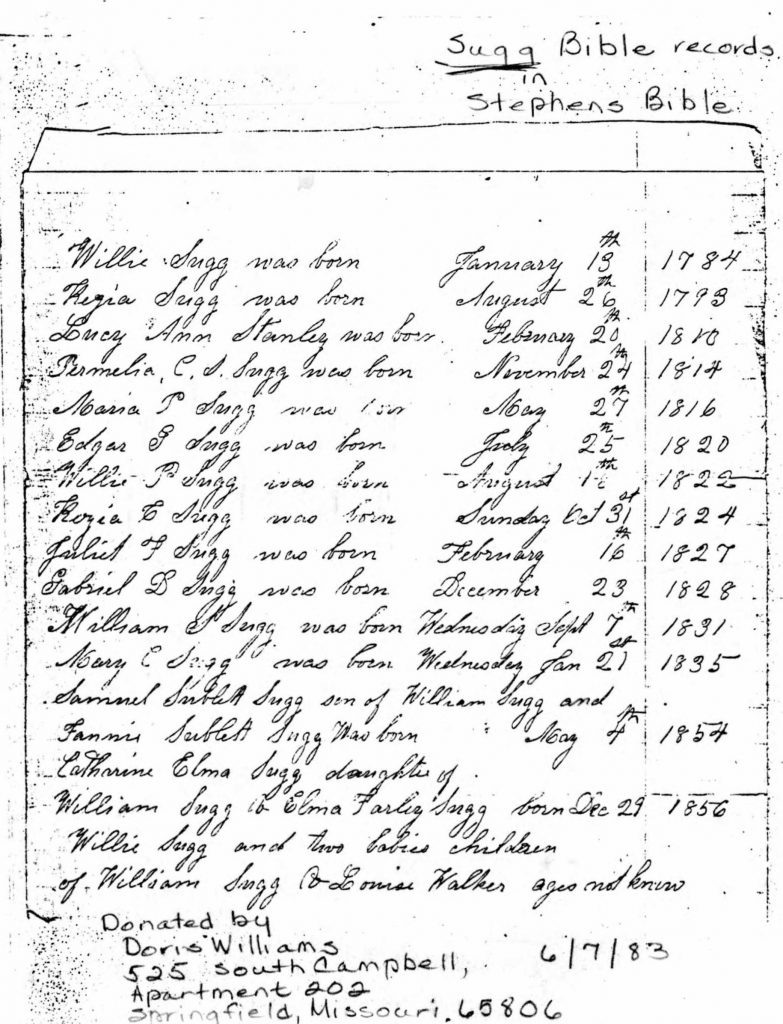 Sugg Bible records
in
Stephens Bible
Willie Sugg was born January 13th 1784
Kezia Sugg was born August 26th 1793
Lucy Ann Stanley was born February 20th 1810
Permelia, C. S. Sugg was born November 24th 1814
Maria P Sugg was born May 27th 1816
Edgar G Sugg was born July 25th 1820
Willie P Sugg was born August th 1822
Kezia C Sugg was born Sunday Oct 31st 1824
Juliet F Sugg was born February 16th 1827
Gabriel D Sugg was born December 23 1828
William S Sugg was born Wednesday Sept 7th 1831
Mary C Sugg was born Wednesday Jan 21st 1835
Samuel Sublett Sugg son of William Sugg and
Fannie Sublett Sugg Was born May 4th 1854
Catharine Elma Sugg daughter of
William Sugg & Elma Farley Sugg born Dec 29 1856
Willie Sugg and two babies children
of William Sugg & Louise Walker ages not know
Donated by
Doris Williams 6/7/83
525 South Campbell,
Apartment 202
Springfield, Missouri. 65806